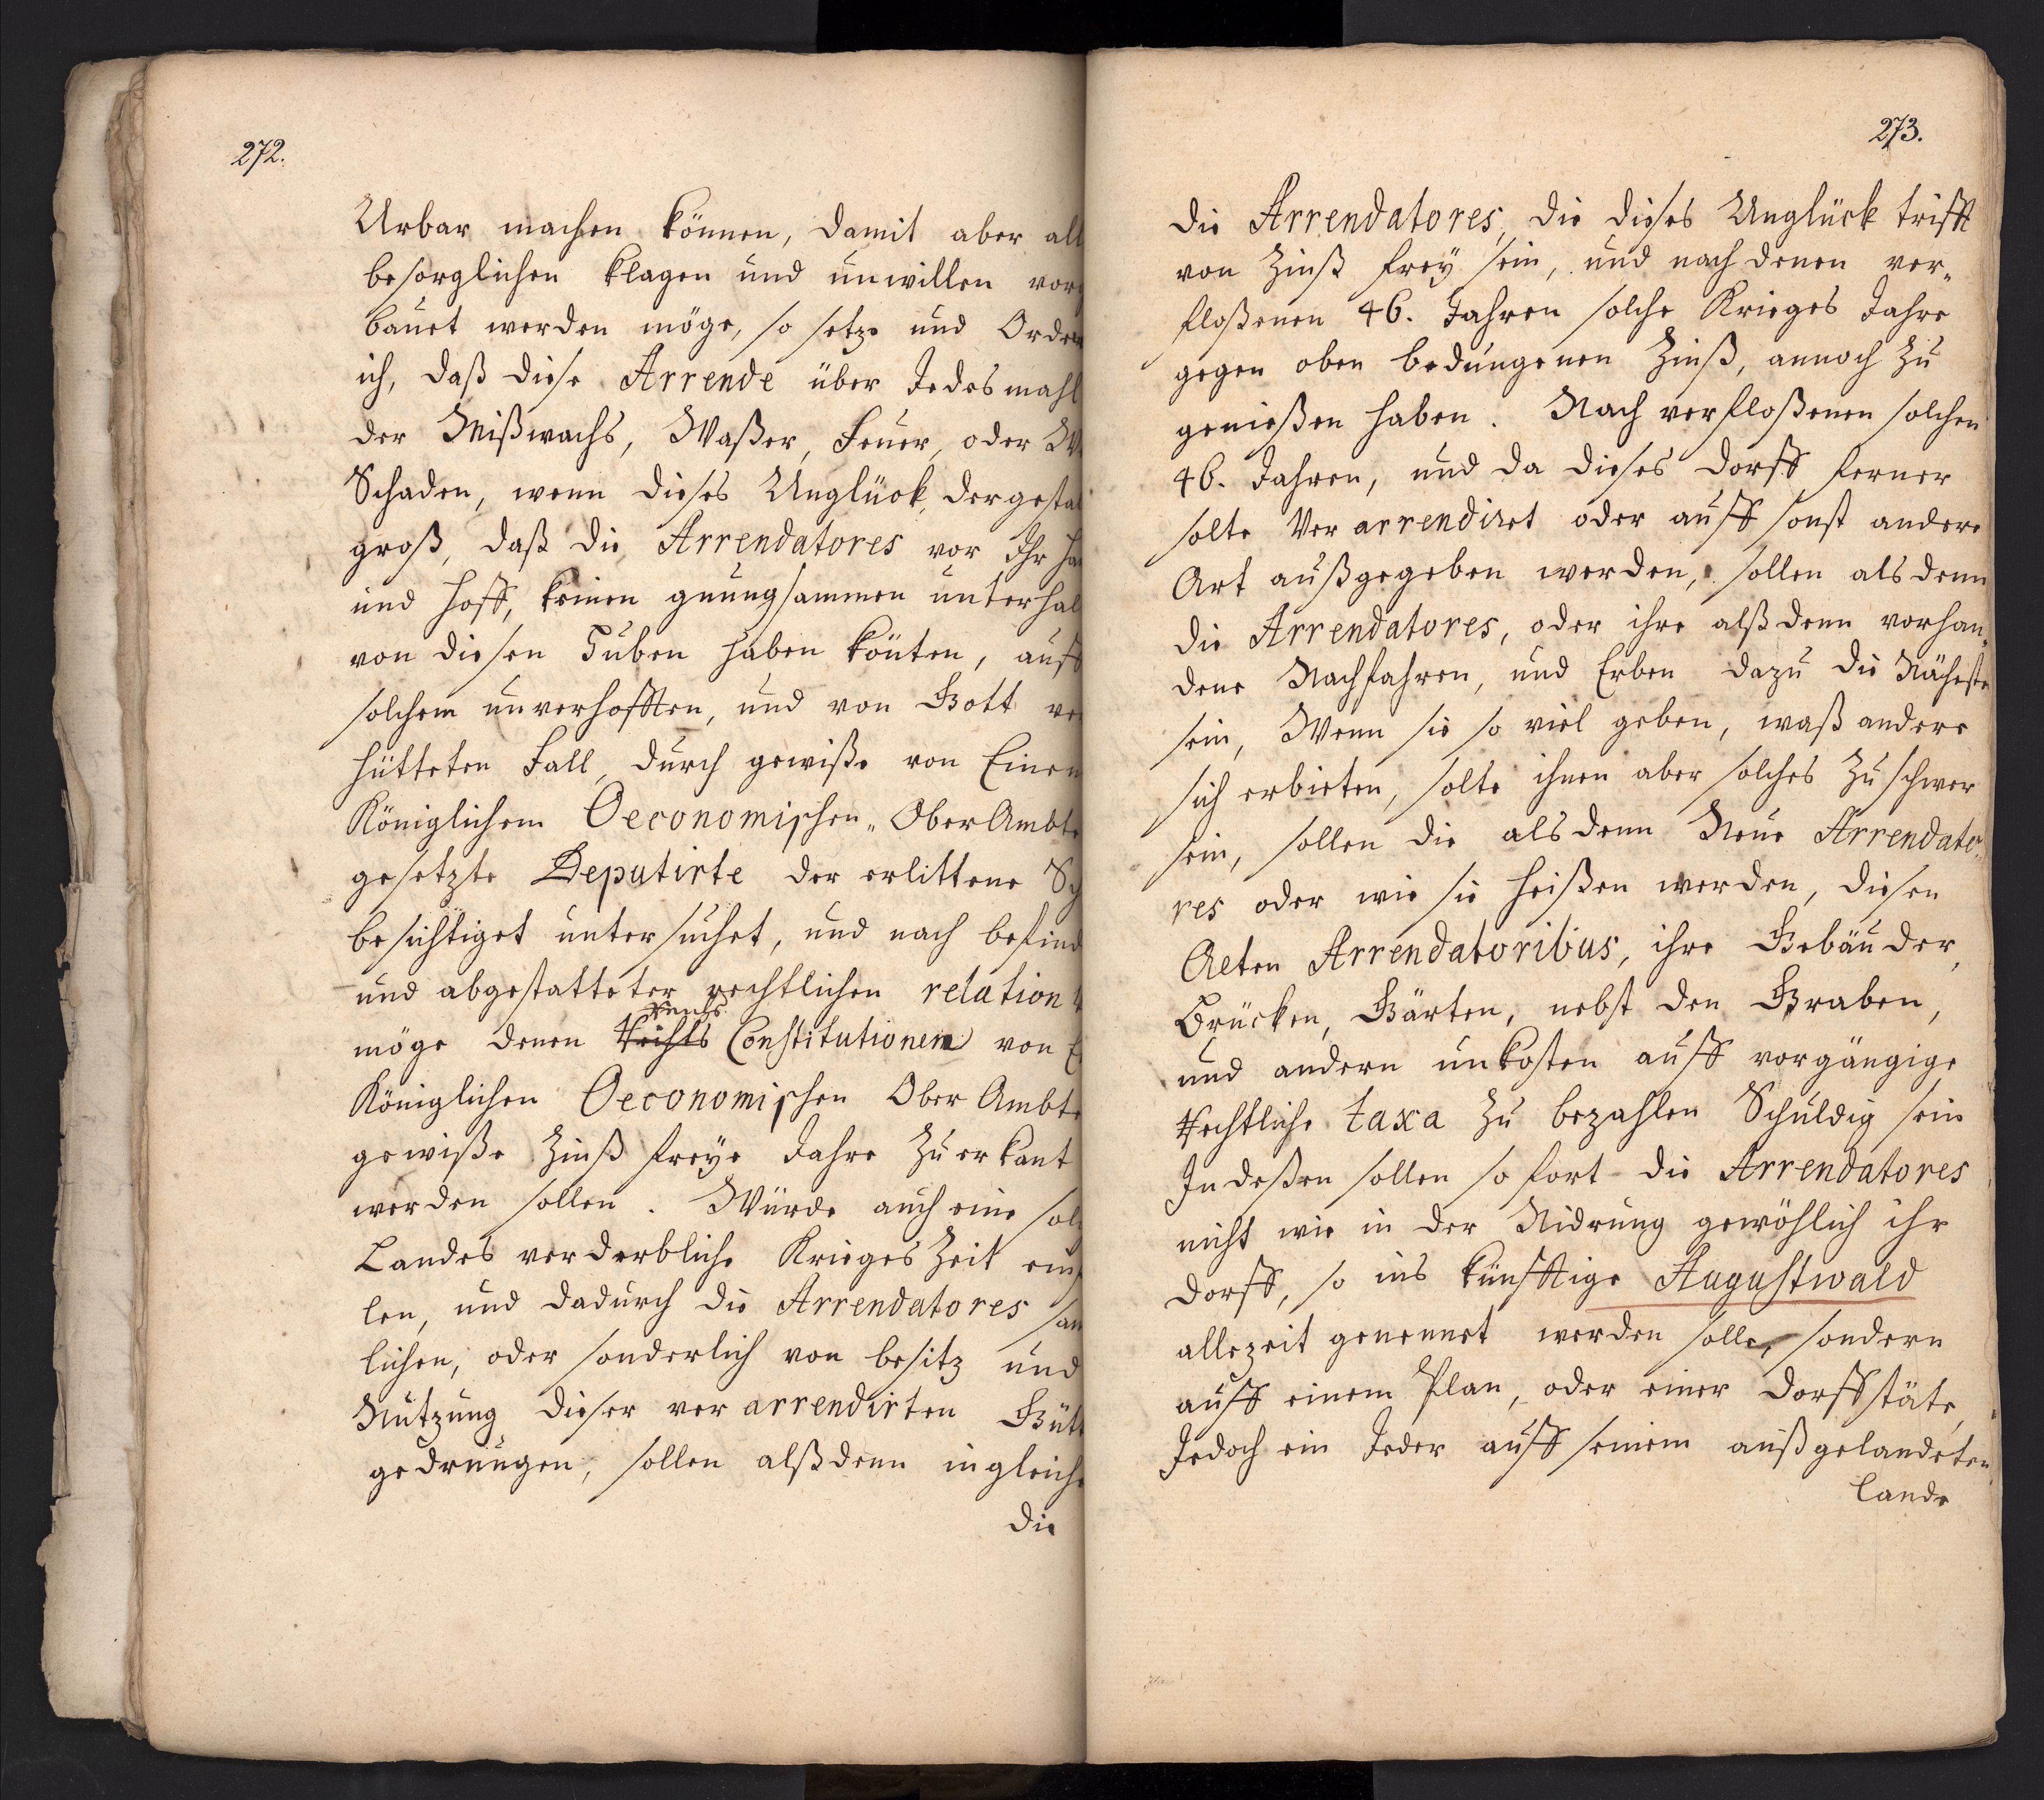 272.
Urbar machen können, damit aber all
besorglichen klagen und unwillen vor
bauet werden möge, so setze und Orden
ich, daß diese Arrende über Jedesmahl
der Mißwachs, Waßer, Feuer, oder
Schaden, wenn dieses Unglück, dergestal
groß, daß die Arrendatores vor Ihr ha
und hoff, keinen gnungsammen unterhal
von diesen Huben haben könten, auff
solchem unverhofften, und von Gott ver
hütteten Fall, durch gewiße von Einem
Königlichem Oeconomischen-OberAmbte
gesetzte Deputirte der erlittene Sch
besichtiget untersuchet, und nach befind
und abgestatteter rechtlichen relation
Reichs
möge denen Constitutionen von E
Königlichen Oeconomischen Ober Ambte
gewiße Zinß freye Jahre Zu erkant
werden sollen. Würde auch eine sol
Landes verderbliche Krieges Zeit einf
len, und dadurch die Arrendatores sam
lichen, oder sonderlich von besitz und
Nutzung dieser ver arrendirten Gütt
gedrungen, sollen alßdenn ingleich
die
273.
die Arrendatores, die dieses Unglück trifft
von Zinß frey sein, und nach denen ver-
floßenen 46. Jahren solche Krieges Jahre
gegen oben bedungenen Zinß, annoch Zu
genießen haben. Nach verfloßenen solchen
46. Jahren, und da dieses dorff ferner
solte Ver arrendiret oder auff sonst andere
Art außgegeben werden, sollen als denn
die Arrendatores, oder ihre alßdenn vorhan-
dene Nachfahren, und Erben dazu die Nächste
sein, Wenn sie so viel geben, waß andere
sich erbieten, solte ihnen aber solches Zu schwer
sein, sollen die als denn Neue Arrendato-
res oder wie sie heißen werden, diesen
Alten Arrendatoribus, ihre Gebäuder,
Brücken, Gärten, nebst den Graben,
und andern unkosten auff vorgängige
Rechtliche taxa Zu bezahlen Schuldig sein
In deßen sollen so fort die Arrendatores
nicht wie in der Nidrung gewöhlich ihr
dorff, so ins künfftige Augustwald
allezeit genennet werden solle, sondern
auff einem Plan, oder einer dorffstäte,
Jedoch ein Jeder auff seinem außgelandeten
Lande